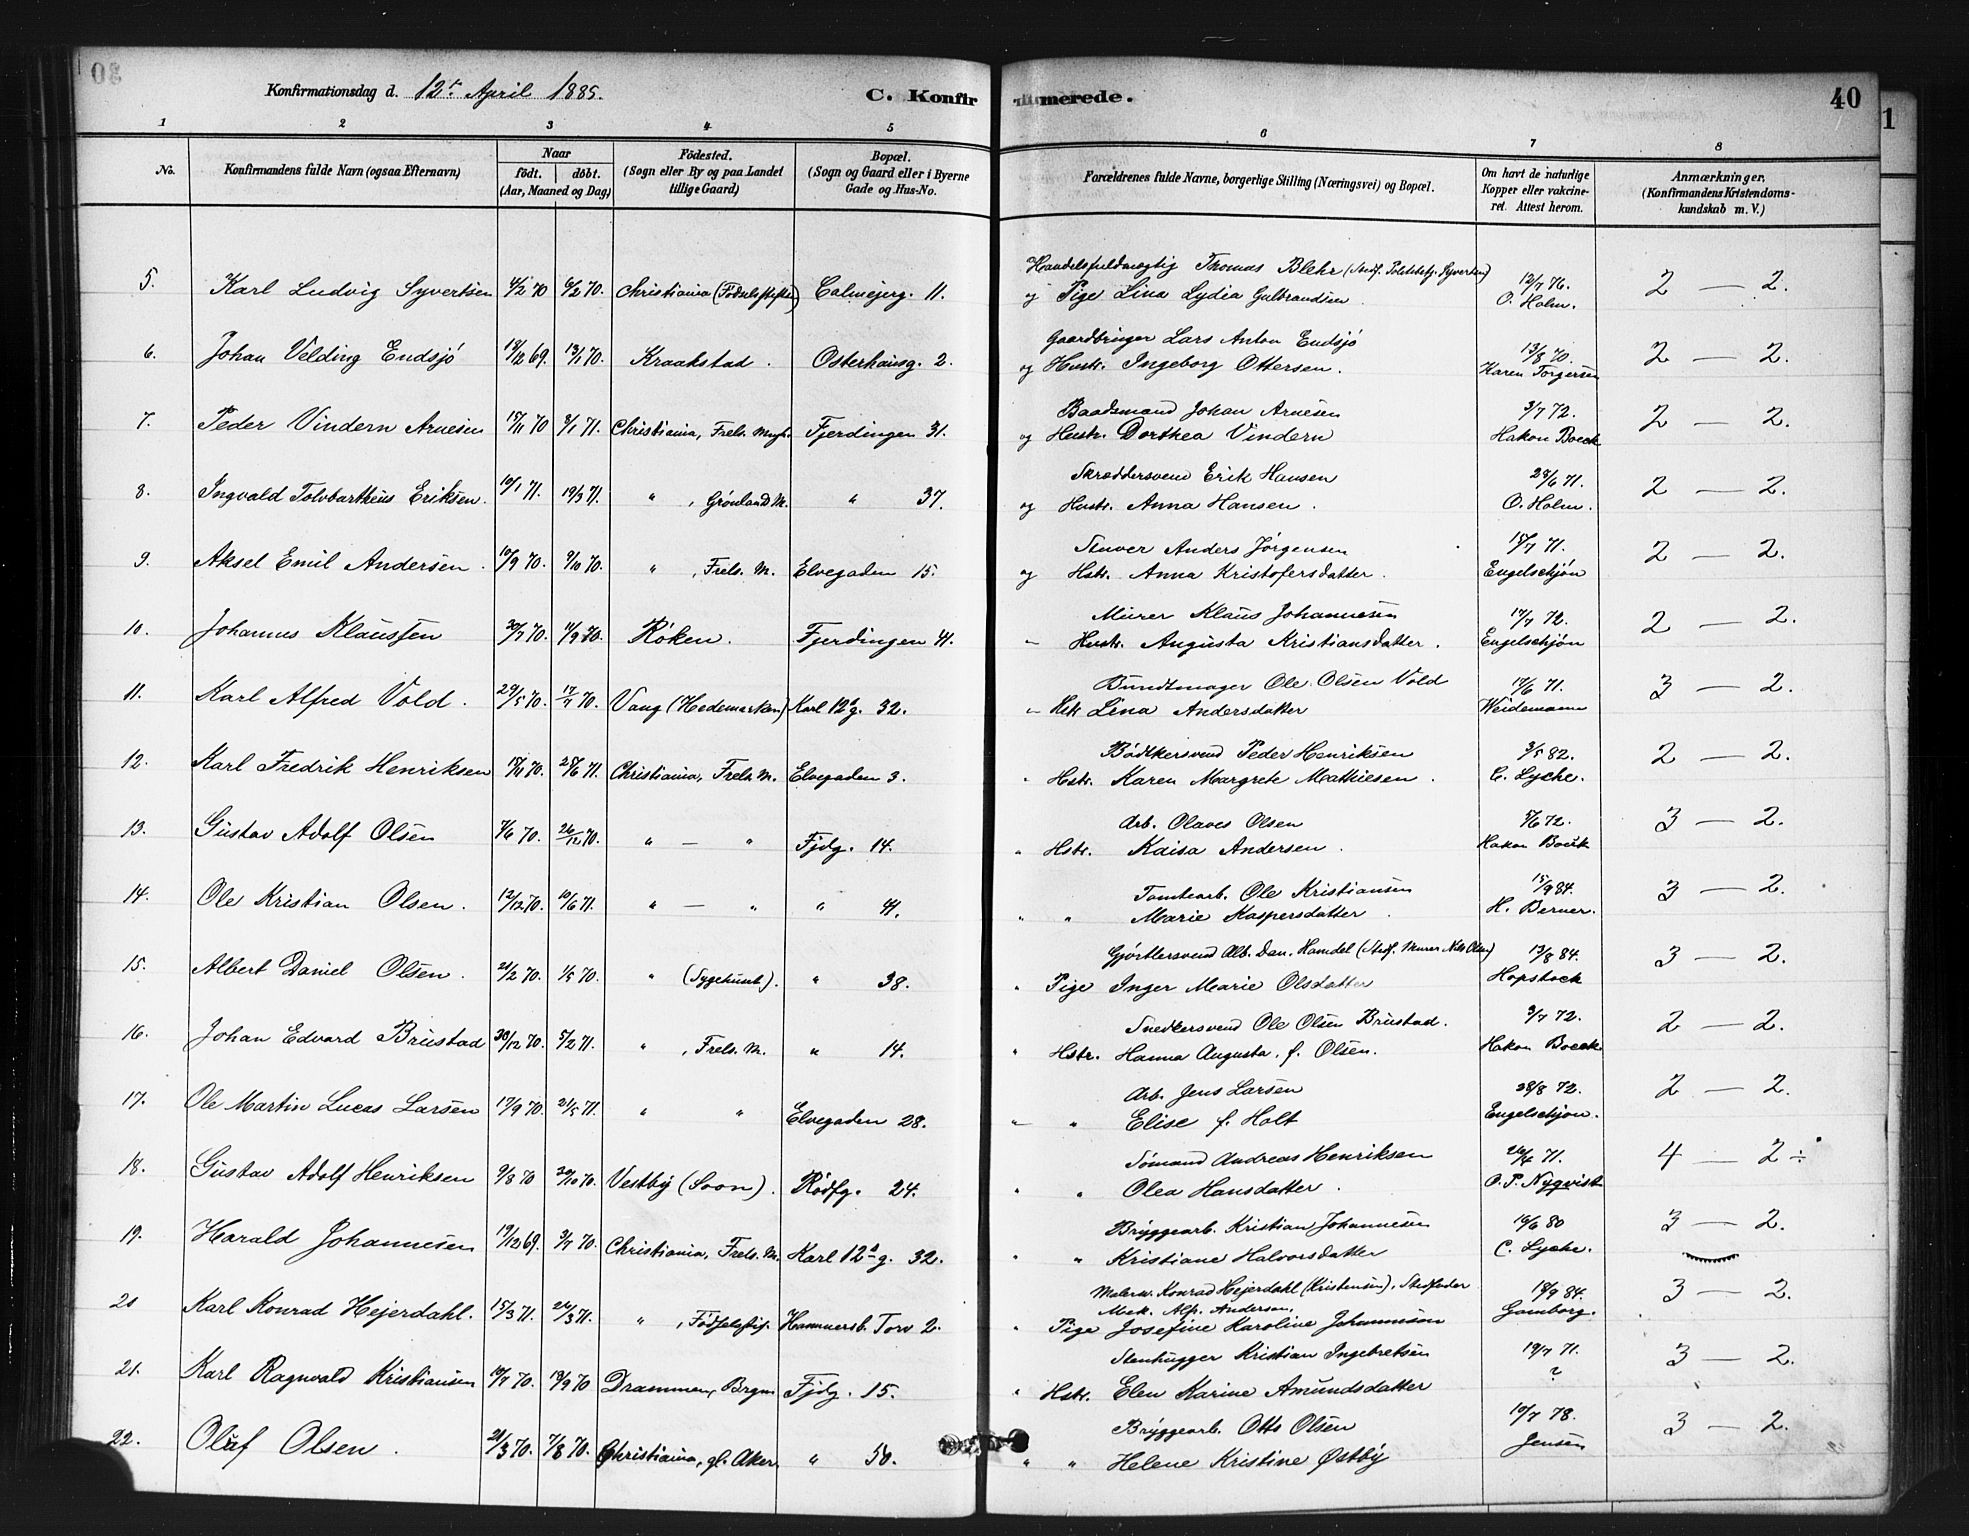 Konfirmationsdag d. 12te April 1885. C. Konfirmerede. 40
1 2 3 4 5 6 7 8
No. Konfirmandens fulde Navn (ogsaa Efternavn) Naar født. døbt. (Aar, Maaned og Dag) Fødested. (Sogn eller By og paa Landet tillige Gaard) Bopæl. (Sogn og Gaard eller i Byerne Gade og Hus-No. Forældrenes fulde Navne, borgerlige Stilling (Næringsvei) og Bopæl. Om havt de naturlige Kopper eller vakcineret. Attest herom. Anmærkninger. (Konfirmandens Kristendomskundskab m. V.)
5. Karl Ludvig Syvertsen 4/2 70 6/2 70. Christiania (Fødselsstiften) Calmejerg. 11. Handelsfuldmægtig Thomas Blehr (Stedf. Politibetj. Syvertsen) 12/7 76. 2 — 2.
og Pige Lina Lydia Gulbrandsen. O. Holm.
6. Johan Velding Endsjø 18/12 69. 13/1 70. Kraakstad. Osterhausg. 2. Gaardbruger Lars Anton Endsjø 13/8 70. 2 — 2.
og Hustr. Ingeborg Ottersen. Karen Torgersen
7. Peder Vindern Arnesen 15/11 70 8/1 71. Christiania, Frels. Mngh. Fjerdingen 31. Baadsmand Johan Arnesen 3/7 72. 2 — 2.
og Hustr. Dorthea Vindern Hakon Boeck
8. Ingvald Tolvbartheus Eriksen. 10/1 71. 19/3 71. " , Grønland M. " 37. Skræddersvend Erik Hansen 28/6 71. 2 — 2.
og Hustr. Anna Hansen. O. Holm.
9. Aksel Emil Andersen. 10/9 70. 9/10 70. " , Frels. M. Elvegaden 15. Stuver Anders Jørgensen 15/7 71. 2 — 2.
og Hstr. Anna Kristofersdatter. Engelschjøn
10. Johannes Klaussen 30/7 70. 11/9 70. Røken. Fjerdingen 41. Murer Klaus Johannesen 17/7 72. 2 — 2.
— Hustr. Augusta Kristiansdatter. Engelschjøn
11. Karl Alfred Vold. 29/5 70. 17/7 70. Vang (Hedemarken) Karl 12s g. 32. Bundtmager Ole Olsen Vold 17/6 71. 3 — 2.
— Hstr Lina Andersdatter Weidemann
12. Karl Fredrik Henriksen 15/11 70. 25/6 71. Christiania, Frels. M. Elvegaden 3. Bødkersvend Peder Henriksen 3/5 82. 2 — 2.
" Hstr. Karen Margrete Mathiesen. C. Lyche.
13. Gustav Adolf Olsen 7/6 70. 26/12 70. " — " Fjdg. 14. Arb. Olaves Olsen 5/6 72. 3 — 2.
" Hstr. Kaisa Andersen. Hakon Boeck
14. Ole Kristian Olsen. 12/12 70. 10/6 71. " — " " 41. Tomtearb. Ole Kristiansen 15/9 84. 3 — 2.
" " Marie Kaspersdatter. H. Berner.
15. Albert Daniel Olsen. 21/2 70. 1/5 70. " (Sygehuset). " 38. Gjørtlersvend Alb. Dan. Hamdel (Stedf. Murer Nils Olsen) 13/8 84. 3 — 2.
" Pige Inger Marie Olsdatter Hopstock
16. Johan Edvard Brustad 30/12 70. 5/2 71. " , Frels. M. " 14. Snedkersvend Ole Olsen Brustad. 9/7 72. 2 — 2.
" Hstr. Hanna Augusta, f. Olsen. Hakon Boeck
17. Ole Martin Lucas Larsen 17/9 70. 21/5 71. " " Elvegaden 28. Arb. Jens Larsen 28/8 72. 2 — 2.
— " Elise f. Holt Engelschjøn.
18. Gustav Adolf Henriksen 9/8 70 30/10 70. Vestby (Soon). Rødfg. 24. Sømand Andreas Henriksen 26/4 71. 4 — 2 ÷
" " Olea Hansdatter. O. P. Nyqvist
19. Harald Johannesen 19/12 69. 3/7 70. Christiania, Frels. M. Karl 12s g. 32. Bryggearb. Kristian Johannesen 19/6 80 3 — 2.
" " Kristiane Halvorsdatter C. Lyche.
20 Karl Konrad Hejerdahl. 15/3 71. 24/3 71. " , Fødselsstif. Hammersb. Torv 2. Malersv. Konrad Hejerdahl (Kristensen), Stedfader 18/9 84. 3 — 2.
Mek. Alf. Anderson.
" Pige Josefine Karoline Johannesen Gamborg.
21. Karl Ragnvald Kristiansen 10/7 70. 18/9 70 Drammen, Brgn Fjdg. 15. Stenhugger Kristian Ingebretsen 19/7 71. 3 — 2.
" Hstr. Elen Karine Amundsdatter ?
22. Oluf Olsen. 21/3 70. 7/8 70. Christiania, gl. Aker " 50. Bryggearb. Otto Olsen 10/7 78. 3 — 2.
" " Helene Kristine Østby Jensen